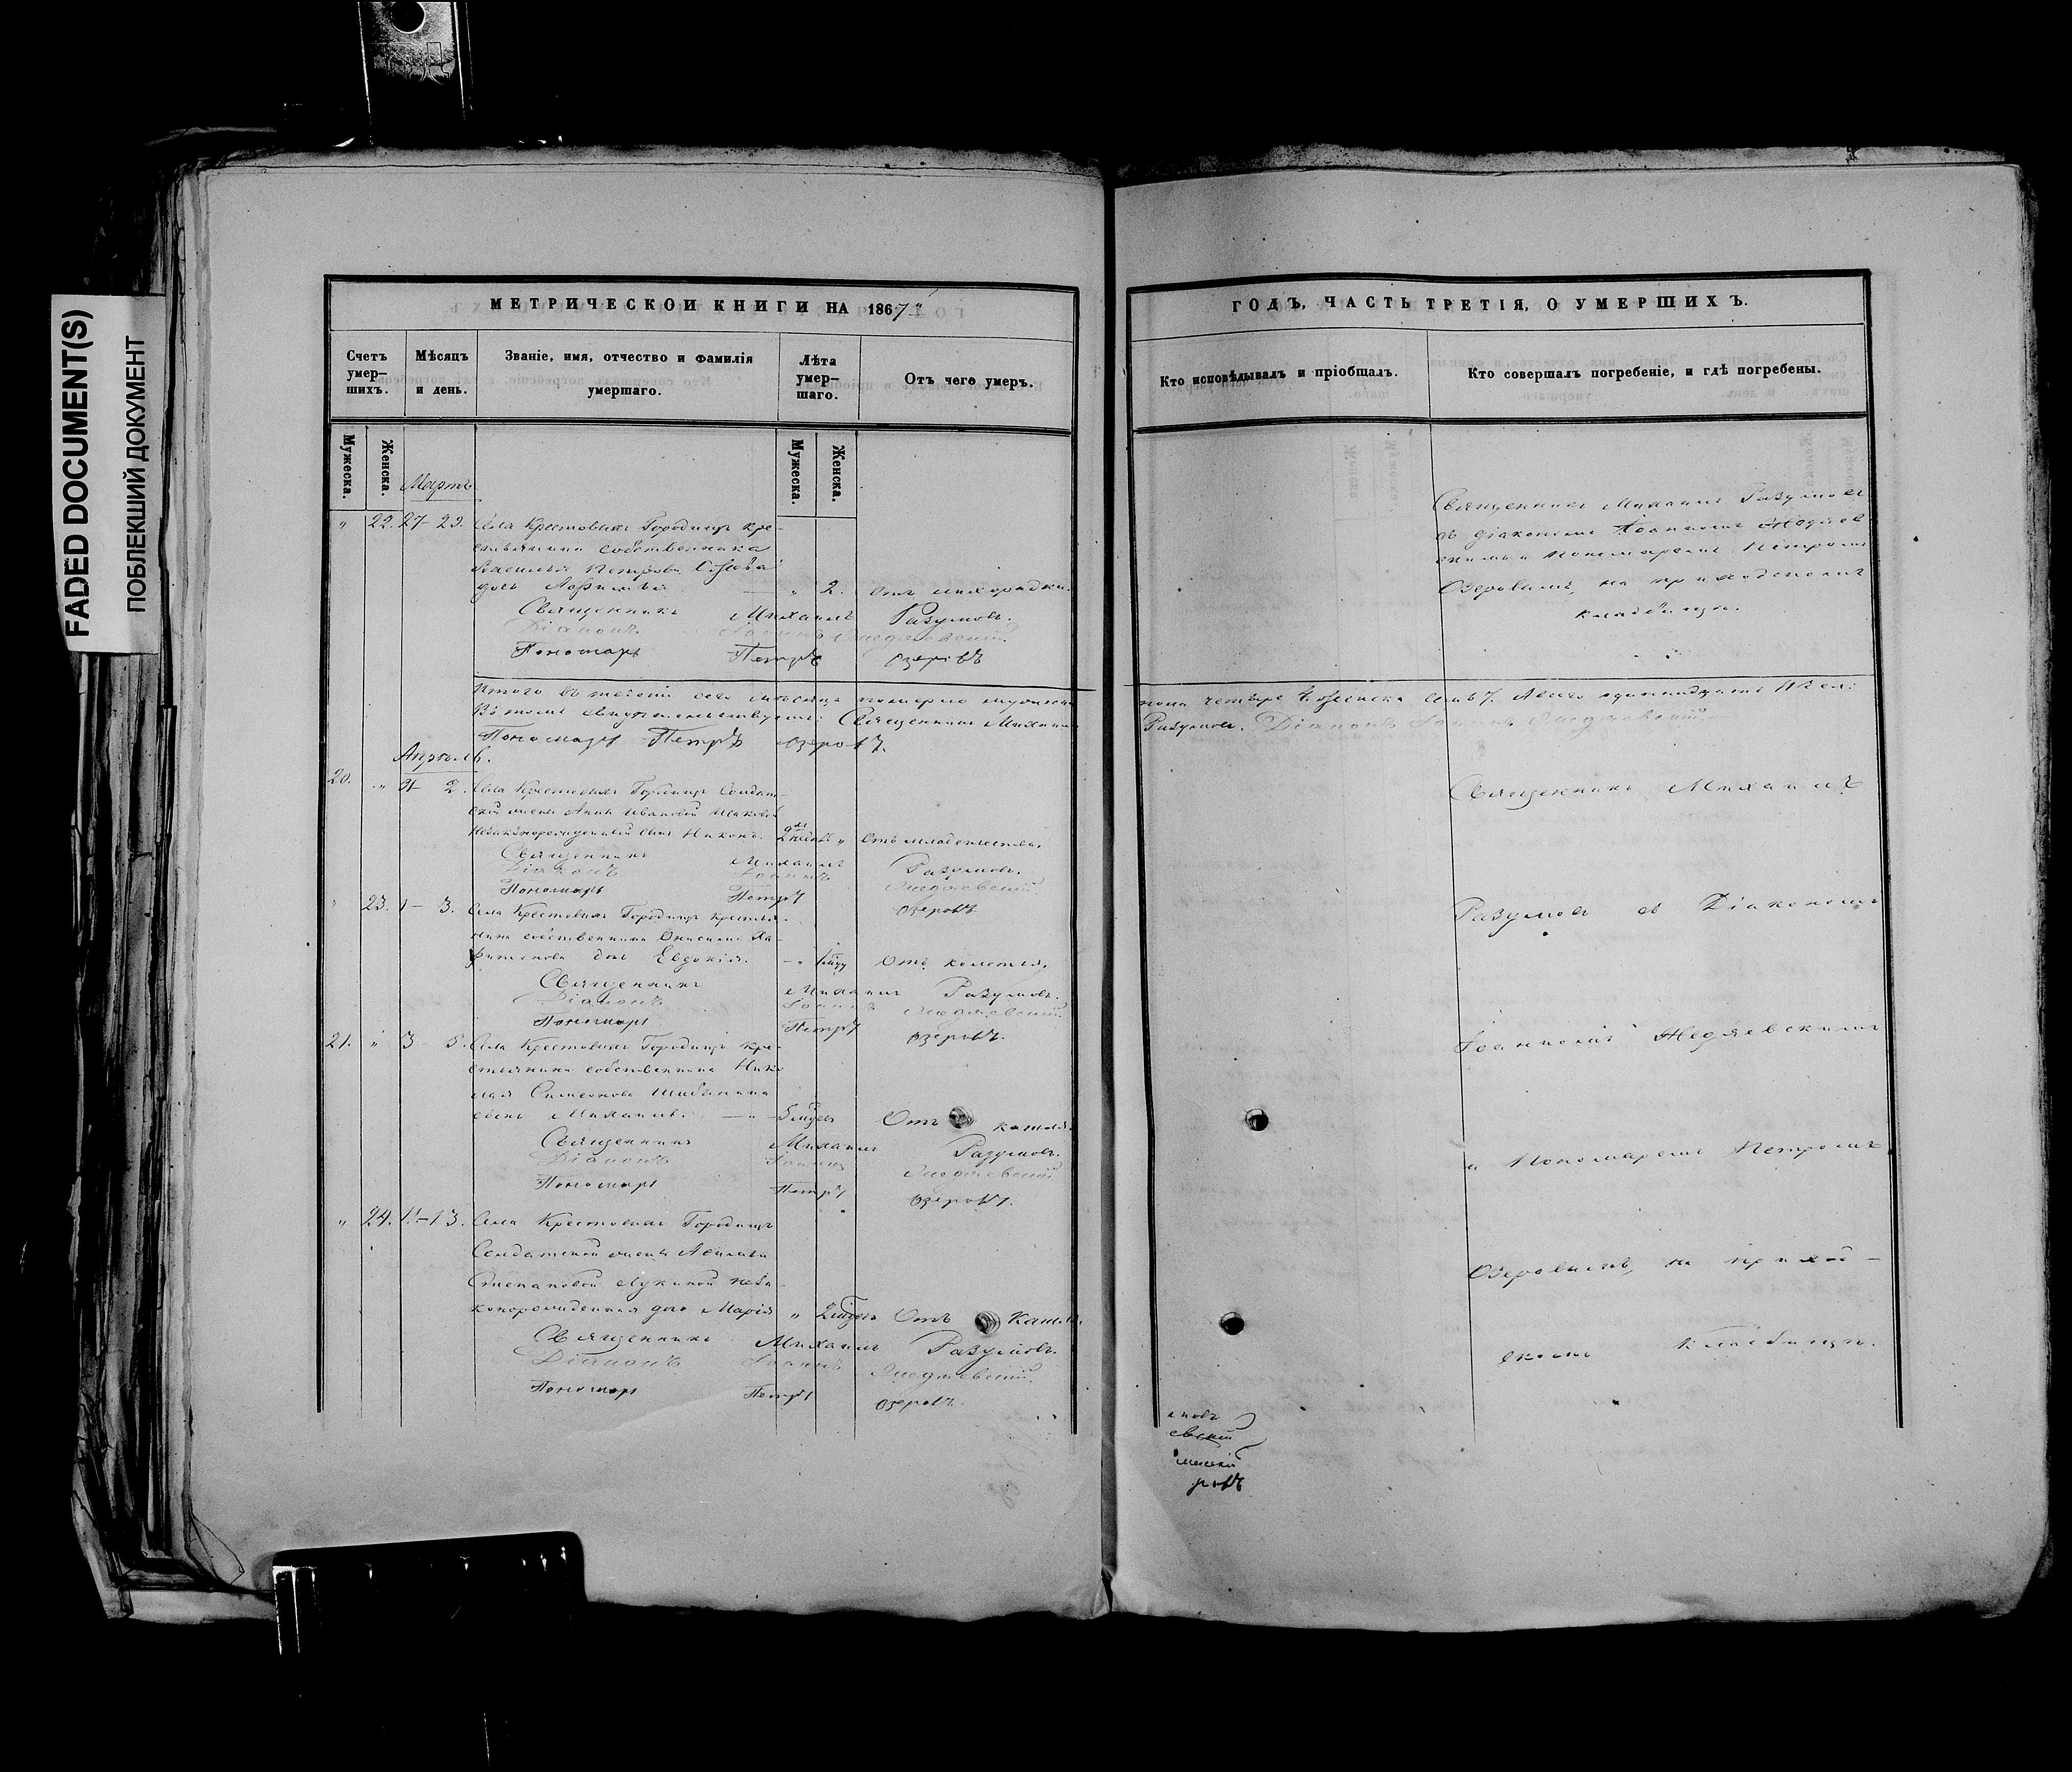 FADED DOCUMENT(S)
ПОБЛЕКШИЙ ДОКУМЕНТ
МЕТРИЧЕСКОИ КНИГИ НА 1867
Счетъ умер-шихъ.
Мѣсяцъ и день.
Званіе, имя, отчество и фамилія умершаго.
Лѣта умер-шаго.
Отъ чего умеръ.
Мужеска.
Женска.
Мужеска.
Женска.
Мартъ
" 22. 27-29. Села Крестовыхъ Городищъ кре-
стьянина собственника
Василія Петрова
дочь " 2. Отъ лихорадки.
Священникъ Михаилъ Разумовъ.
Діаконъ Іоаннъ
Пономарь Петръ Озеровъ
Итого въ теченіи сего мѣсяца померло мужеска
Въ томъ свидѣтельствуютъ: Священникъ Михаилъ
Пономарь Петръ Озеровъ.
Апрѣль.
20. " 2. Села Крестовыхъ Городищъ Солдат-
ской жены Анны Ивановой
Незаконнорожденный сынъ Никонъ. 2 недѣль " Отъ младенчества.
Священникъ Михаилъ Разумовъ.
Діаконъ Іоаннъ
Пономарь Петръ Озеровъ
" 23. 1-3. Села Крестовыхъ Городищъ крестья-
нина собственника Онисима Ха-
ритонова дочь Евдокія. " Отъ колотья.
Священникъ Михаилъ Разумовъ.
Діаконъ Іоаннъ
Пономарь Петръ Озеровъ.
21. " 3 5. Села Крестовыхъ Городищъ кре-
стьянина собственника Нико-
лая Симеонова
сынъ Михаилъ. Отъ кашля.
Священникъ Михаилъ Разумовъ.
Діаконъ Іоаннъ
Пономарь Петръ Озеровъ.
" 24. 11-13. Села Крестовыхъ Городищъ
Солдатской жены
Степановой Лукиной неза-
коннорожденная дочь Марія " Отъ кашля.
Священникъ Михаилъ Разумовъ.
Діаконъ Іоаннъ
Пономарь Петръ Озеровъ.
ГОДЪ, ЧАСТЬ ТРЕТІЯ, О УМЕРШИХЪ.
Кто исповѣдывалъ и пріобщалъ.
Кто совершалъ погребеніе, и гдѣ погребены.
Священникъ Михаилъ Разумовъ
съ діакономъ Іоанномъ
и пономаремъ Петромъ
Озеровымъ, на приходскомъ
кладбищѣ.
пола четыре 4. женска семь 7. Всего одиннадцать 11
Разумовъ. Діаконъ Іоаннъ
Священникъ Михаилъ
Разумовъ съ Діакономъ
Іоанномъ
и Пономаремъ Петромъ
Озеровымъ, на приход-
скомъ кладбищѣ.